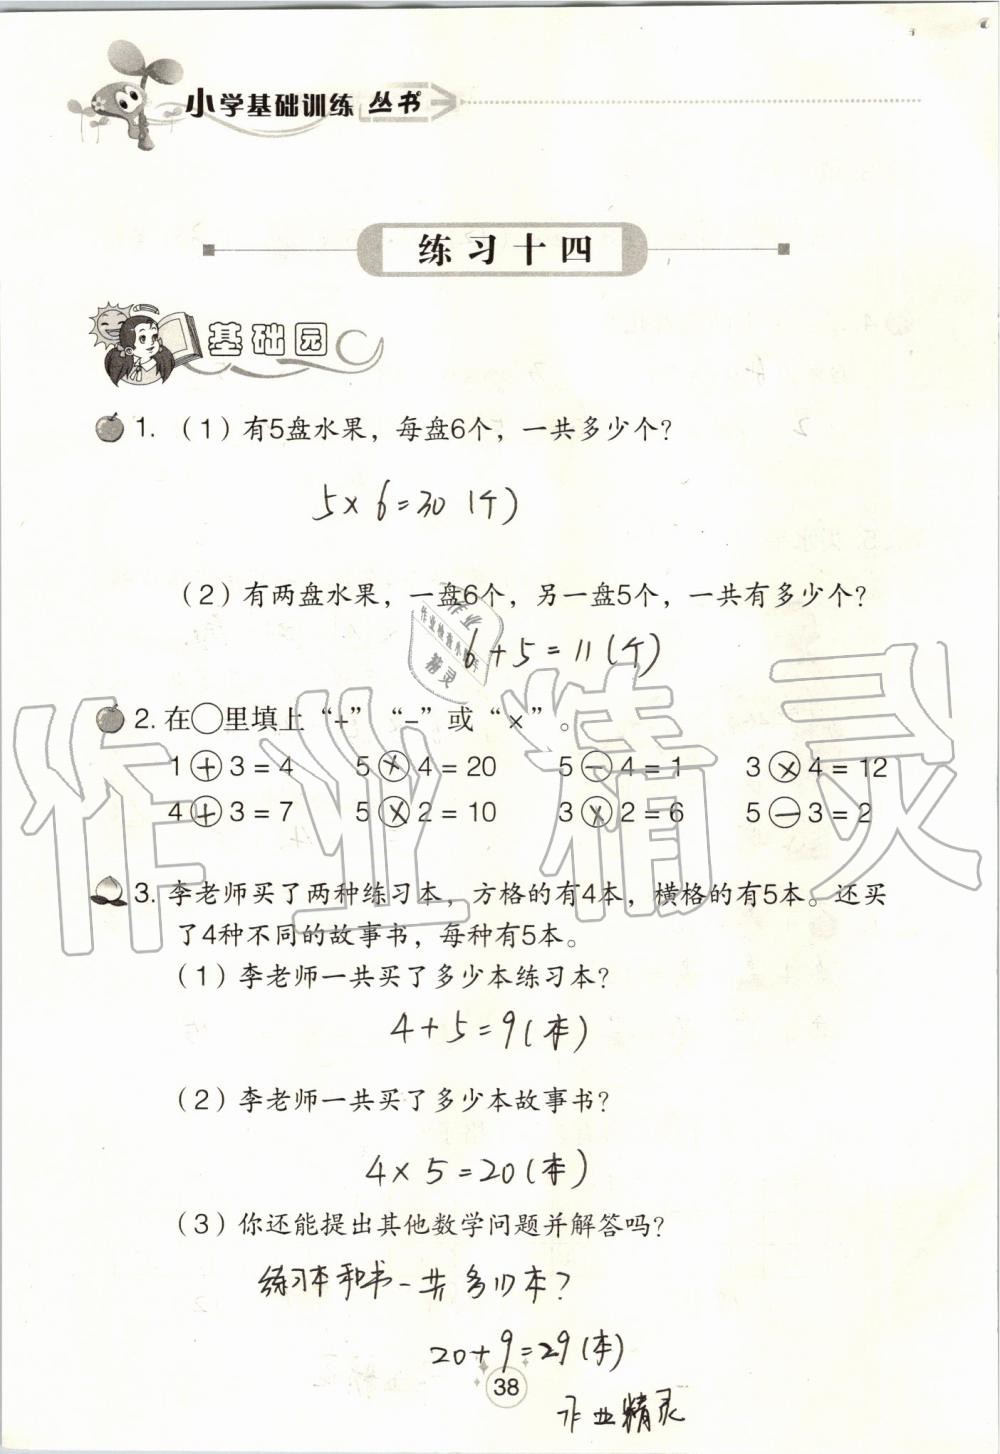 小学基础训练丛书
练习十四
基础园
1. （1）有5盘水果，每盘6个，一共多少个？
5×6=30（个）
（2）有两盘水果，一盘6个，另一盘5个，一共有多少个？
6+5=11（个）
2. 在○里填上“+”“−”或“×”。
1+3=4 5×4=20 5−4=1 3×4=12
4+3=7 5×2=10 3×2=6 5−3=2
3. 李老师买了两种练习本，方格的有4本，横格的有5本。还买
了4种不同的故事书，每种有5本。
（1）李老师一共买了多少本练习本？
4+5=9（本）
（2）李老师一共买了多少本故事书？
4×5=20（本）
（3）你还能提出其他数学问题并解答吗？
练习本和书一共多少本？
20+9=29（本）
38
作业精灵
作业精灵
作业
作业检查小助手
精灵